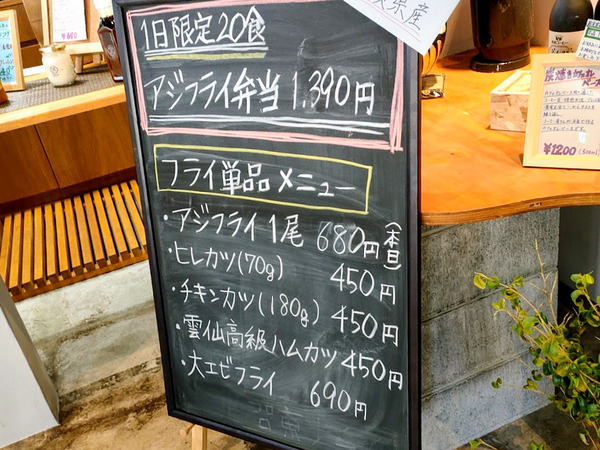 1日限定20食
アジフライ弁当 1,390円
フライ単品メニュー
・アジフライ 1尾 680円(本日)
・ヒレカツ(70g) 450円
・チキンカツ(180g) 450円
・雲仙高級ハムカツ 450円
・大エビフライ 690円
¥1200(500ml)
¥680